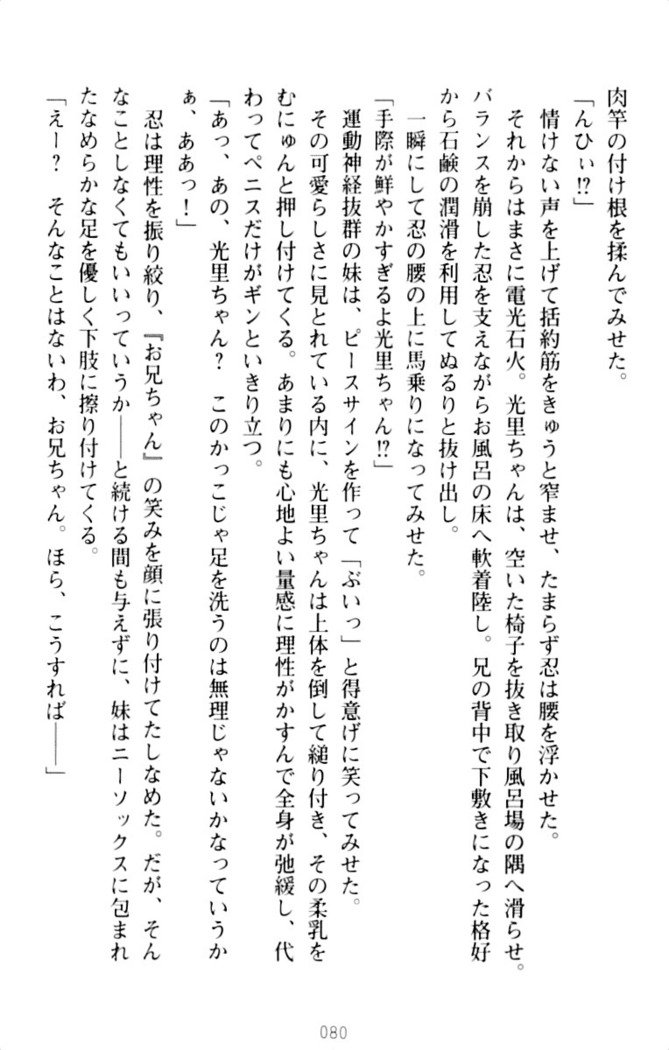 肉竿の付け根を揉んでみせた。
「んひぃ!?」
情けない声を上げて括約筋をきゅうと窄ませ、たまらず忍は腰を浮かせた。
それからはまさに電光石火。光里ちゃんは、空いた椅子を抜き取り風呂場の隅へ滑らせ。
バランスを崩した忍を支えながらお風呂の床へ軟着陸し。兄の背中で下敷きになった格好
から石鹸の潤滑を利用してぬるりと抜け出し。
一瞬にして忍の腰の上に馬乗りになってみせた。
「手際が鮮やかすぎるよ光里ちゃん!?」
運動神経抜群の妹は、ピースサインを作って「ぶいっ」と得意げに笑ってみせた。
その可愛らしさに見とれている内に、光里ちゃんは上体を倒して縋り付き、その柔乳を
むにゅんと押し付けてくる。あまりにも心地よい量感に理性がかすんで全身が弛緩し、代
わってペニスだけがギンといきり立つ。
「あっ、あの、光里ちゃん？　このかっこじゃ足を洗うのは無理じゃないかなっていうか
ぁ、ああっ！」
忍は理性を振り絞り、『お兄ちゃん』の笑みを顔に張り付けてたしなめた。だが、そん
なことしなくてもいいっていうか――と続ける間も与えずに、妹はニーソックスに包まれ
たなめらかな足を優しく下肢に擦り付けてくる。
「えー？　そんなことはないわ、お兄ちゃん。ほら、こうすれば――」
080